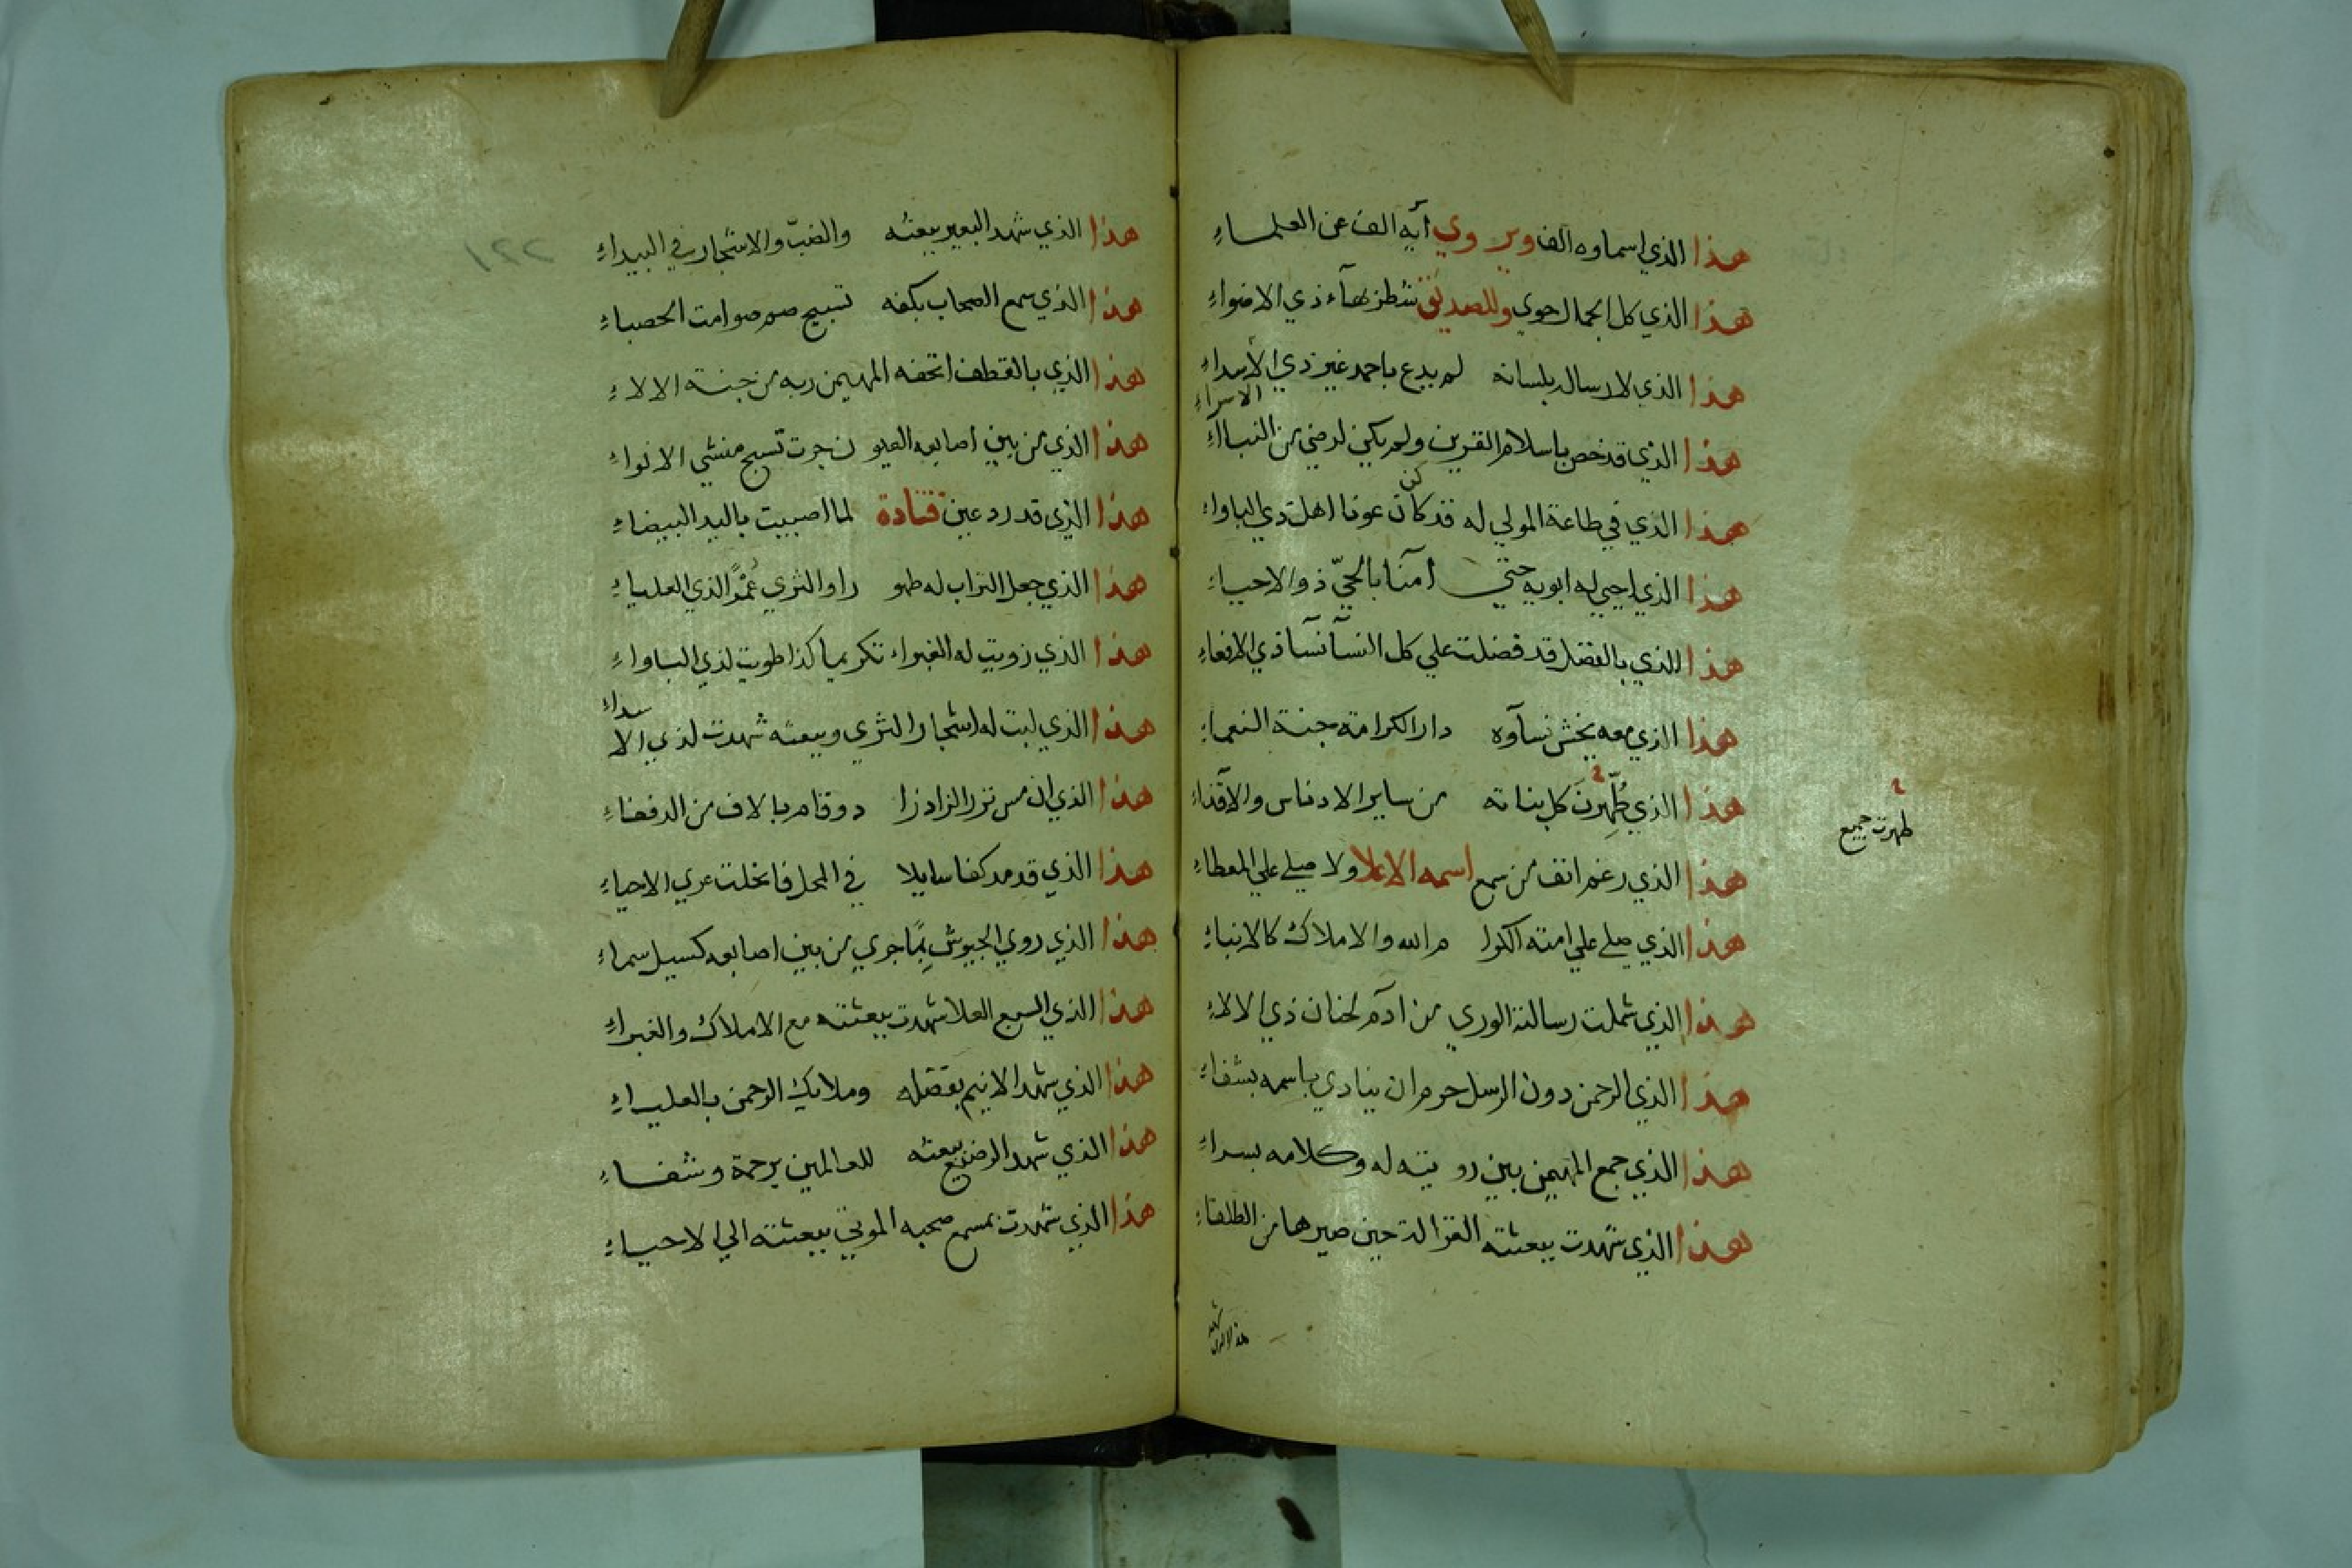 هذا الذي اسماوه الف وير وي آيه الف عن العلماء
هذا الذي كل الجمال حوي وللصديق شطر بهآء ذي الاضواء
هذا الذي لا رسال بلسانه لم يدع باحمد غير ذي الاسداء
الاسراء
هذا الذي قد خص باسلام القرين ولم يكن لرضي من النبآء
هذا الذي في طاعة المولي له قد كان عونا اهل ذي الباواء
كن
هذا الذي احيي له ابويه حتي آمنا بالحيّ ذو الاحياء
هذا الذي بالفضل قد فضلت علي كل النسآ نسآ ذي الافعاء
هذا الذي معه يحش نسآوه دار الكرامة جنة النعماء
هذا الذي طُهِّرنَ كل بناته من ساير الادناس والآقذاء
طهرت جميع
هذا الذي رغم انف من سمع اسمه الاعلا ولا صلي علي المعطاء
هذا الذي صلي علي امته اكرا م الله والاملاك كالانباء
هذا الذي شملت رسالته الوري من آدم لجنان ذي الالاء
هذا الذي الرحمن دون الرسل حرم ان ينادي باسمه بشفاء
هذا الذي جمع المهيمن بين رو يته له وكلامه بسراء
هذا الذي شهدت ببعثته الغزالة حين صيرها من الطلقاء
١٢٢
هذا الذي شهد البعير ببعثه والضبّ والاشجار في البيداء
هذا الذي سمع الصحاب بكفه تسبيح صم صوامت الحصباء
هذا الذي بالقطف اتحفه المهيمن ربه من جنة الالاء
هذا الذي من بين اصابعه العيو ن جرت تسبح منشي الانواء
هذا الذي قد رد عين قتادة لما اصيبت باليد البيضاء
هذا الذي جعل التراب له طهو را والثري الذي العلياء
هذا الذي زويت له الغبراء تكريما كذا طويت لذي الباواء
هذا الذي لبت له اشجار الثري وببعثه شهدت لذي الا
سداء
هذا الذي ان مس نزر الزاد زا د وقام بالاف من الدفعاء
هذا الذي قد مد كفا سايلا في المحل فانحلت عري الاحياء
هذا الذي روي الجيوش بمًا جري من بين اصابعه كسيل سماء
هذا الذي السبع العلا شهدت ببعثته مع الاملاك والغبراء
هذا الذي شهد الانيم بفضله وملايك الرحمن بالعليـاء
هذا الذي شهد الرضيع ببعثه للعالمين برحمة وشفـاء
هذا الذي شهدت بمسمع صحبه الموتي ببعثته الي الاحياء